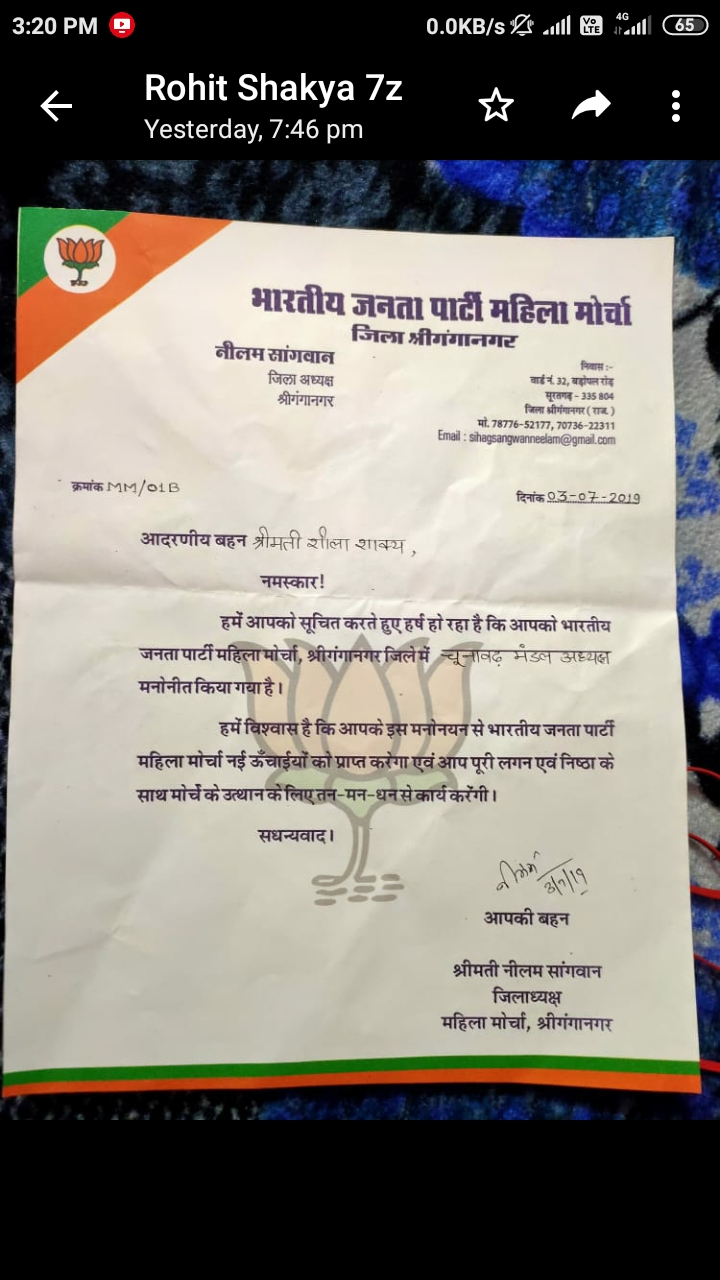 3:20 PM
0.0KB/s
Vo LTE
4G
65
Rohit Shakya 7z
Yesterday, 7:46 pm
भारतीय जनता पार्टी महिला मोर्चा
जिला श्रीगंगानगर
नीलम सांगवान
जिला अध्यक्ष
श्रीगंगानगर
निवास :-
वार्ड नं. 32, बड़ोपल रोड़
सूरतगढ़ - 335 804
जिला श्रीगंगानगर ( राज. )
मो. 78776-52177, 70736-22311
Email : sihagsangwanneelam@gmail.com
क्रमांक MM/01B
दिनांक 03-07-2019
आदरणीय बहन श्रीमती शीला शाक्य,
नमस्कार!
हमें आपको सूचित करते हुए हर्ष हो रहा है कि आपको भारतीय
जनता पार्टी महिला मोर्चा, श्रीगंगानगर जिले में चूनावढ़ मंडल अध्यक्ष
मनोनीत किया गया है।
हमें विश्वास है कि आपके इस मनोनयन से भारतीय जनता पार्टी
महिला मोर्चा नई ऊँचाईयों को प्राप्त करेगा एवं आप पूरी लगन एवं निष्ठा के
साथ मोर्चे के उत्थान के लिए तन-मन-धन से कार्य करेंगी।
सधन्यवाद।
नीलम
3/7/19
आपकी बहन
श्रीमती नीलम सांगवान
जिलाध्यक्ष
महिला मोर्चा, श्रीगंगानगर